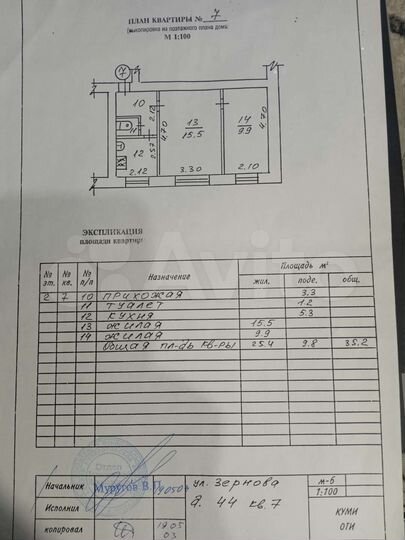 ПЛАН КВАРТИРЫ № 7
(выкопировка из поэтажного плана дома)
М 1:100
7
10
2.12
11
13
15.5
4.70
14
9.9
4.70
12
2.57
2.12
3.30
2.10
ЭКСПЛИКАЦИЯ
площади квартир
№ эт. № кв. № п/п Назначение Площадь м²
жил. подс. общ.
2 7 10 ПРИХОЖАЯ 3.3
11 ТУАЛЕТ 1.2
12 КУХНЯ 5.3
13 ЖИЛАЯ 15.5
14 ЖИЛАЯ 9.9
Общая пл-дь кв-ры 25.4 9.8 35.2
Avito
Отдел
Начальник Муругов В.П. 190503 ул. Зернова м-б
1:100
Исполнил д. 44 кв. 7 КУМИ
копировал 19.05 ОТИ
03